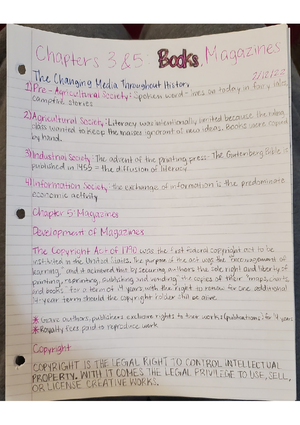 Chapters 3 & 5: Books, Magazines
The Changing Media Throughout History
1) Pre-Agricultural Society: Spoken word - lives on today in fairy tales,
campfire stories
2) Agricultural Society: Literacy was intentionally limited because the ruling
class wanted to keep the masses ignorant of new ideas. Books were copied
by hand.
3) Industrial Society: The advent of the printing press. The Gutenberg Bible =
published in 1455 = the diffusion of literacy
4) Information Society: the exchange of information is the predominate
economic activity
Chapter 5: Magazines
Development of Magazines
The Copyright Act of 1790 was the first federal copyright act to be
instituted in the United States. The purpose of the act was the "encouragement of
learning," and it achieved this by securing authors the "sole right and liberty of
printing, reprinting, publishing and vending" the copies of their "maps, charts,
and books" for a term of 14 years, with the right to renew for one additional
14-year term should the copyright holder still be alive.
authors, publishers exclusive rights to their works (publications) for 14 years
Royalty fees paid to reproduce work
Copyright
COPYRIGHT IS THE LEGAL RIGHT TO CONTROL INTELLECTUAL
PROPERTY. WITH IT COMES THE LEGAL PRIVILEGE TO USE, SELL,
OR LICENSE CREATIVE WORKS.